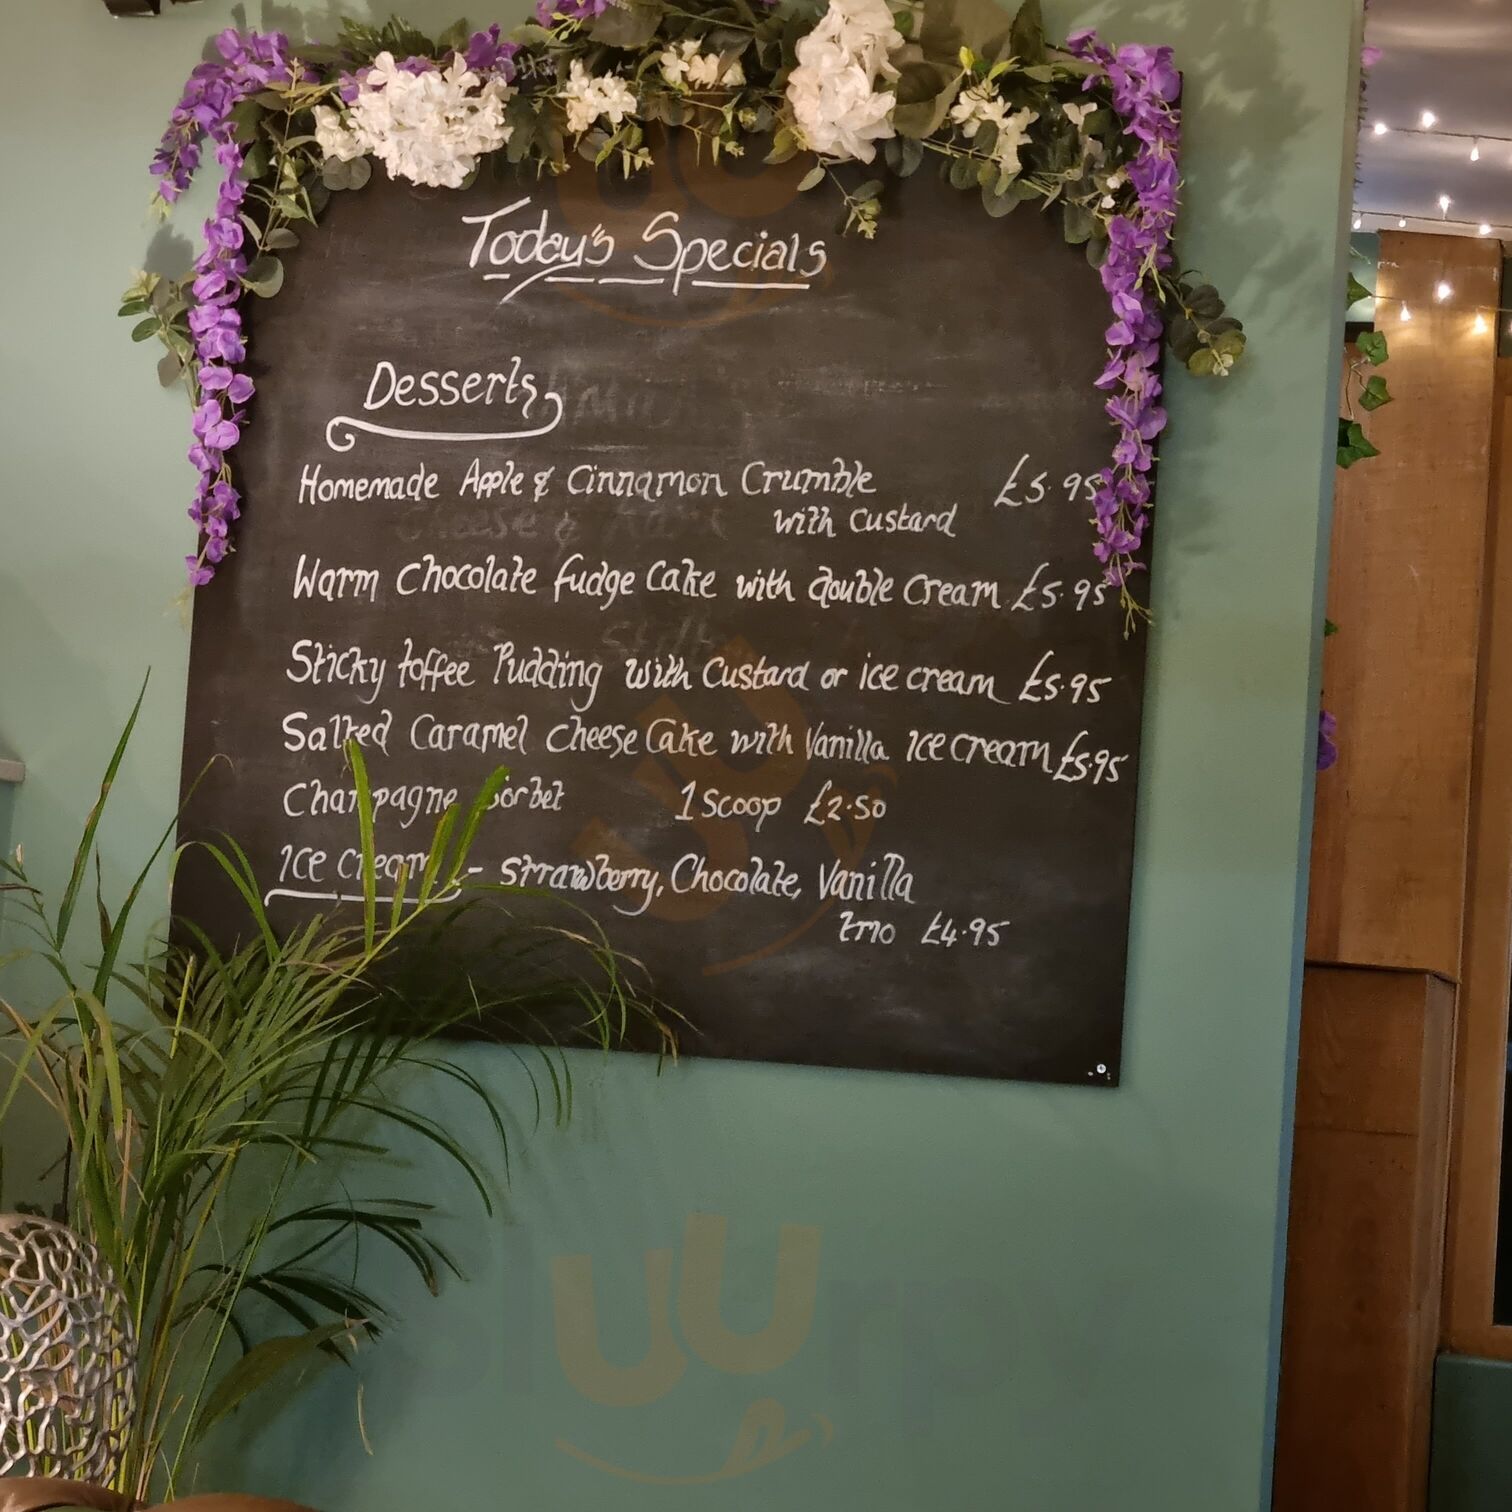 Today's Specials
Desserts
Homemade Apple & Cinnamon Crumble £5.95
with custard
Warm Chocolate fudge Cake with double cream £5.95
Sticky toffee Pudding with Custard or ice cream £5.95
Salted Caramel Cheese Cake with Vanilla Ice cream £5.95
Champagne Sorbet 1 Scoop £2.50
Ice Cream - Strrawberry, Chocolate, Vanilla
trio £4.95